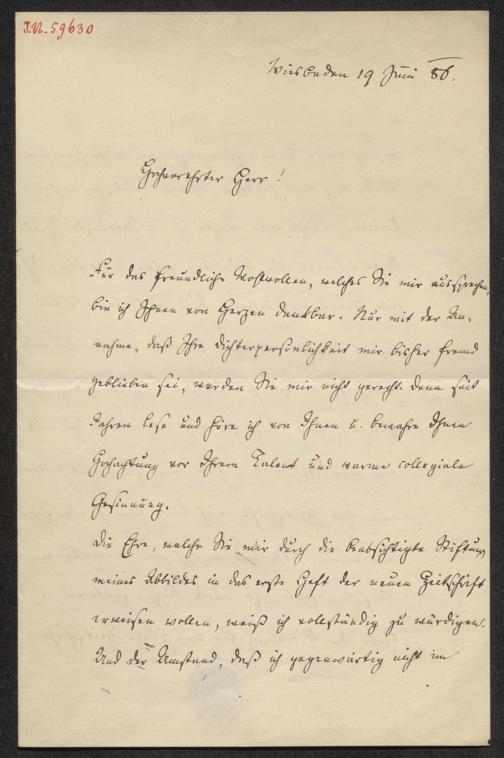 I.N. 59630
Wiesbaden 19 Juni 86.
Hochverehrter Herr!
Für das freundliche Wohlwollen, welches Sie mir aussprechen,
bin ich Ihnen von Herzen dankbar. Nur mit der An-
nahme, daß Ihre Dichterpersönlichkeit mir bisher fremd
geblieben sei, werden Sie mir nicht gerecht. Denn seit
Jahren lese und höre ich von Ihnen u. bewahre Ihnen
Hochachtung vor Ihrem Talent und warme collegiale
Gesinnung.
Die Ehre, welche Sie mir durch die beabsichtigte Stiftung
meines Abbildes in das erste Heft der neuen Zeitschrift
erweisen wollen, weiß ich vollständig zu würdigen.
Und der Umstand, daß ich gegenwärtig nicht im